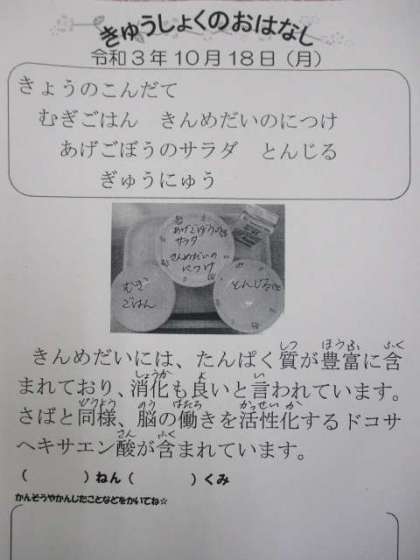 きゅうしょくのおはなし
令和3年10月18日（月）
きょうのこんだて
むぎごはん　きんめだいのにつけ
あげごぼうのサラダ　とんじる
ぎゅうにゅう
あげごぼうの
サラダ
きんめだいの
につけ
むぎ
ごはん
とんじる
しつ　ほうふ　ふく
きんめだいには、たんぱく質が豊富に含
しょうか　よ　い
まれており、消化も良いと言われています。
どうよう　のう　はたら　かっせいか
さばと同様、脳の働きを活性化するドコサ
さん　ふく
ヘキサエン酸が含まれています。
（　　　）ねん（　　　）くみ
かんそうやかんじたことなどをかいてね☆